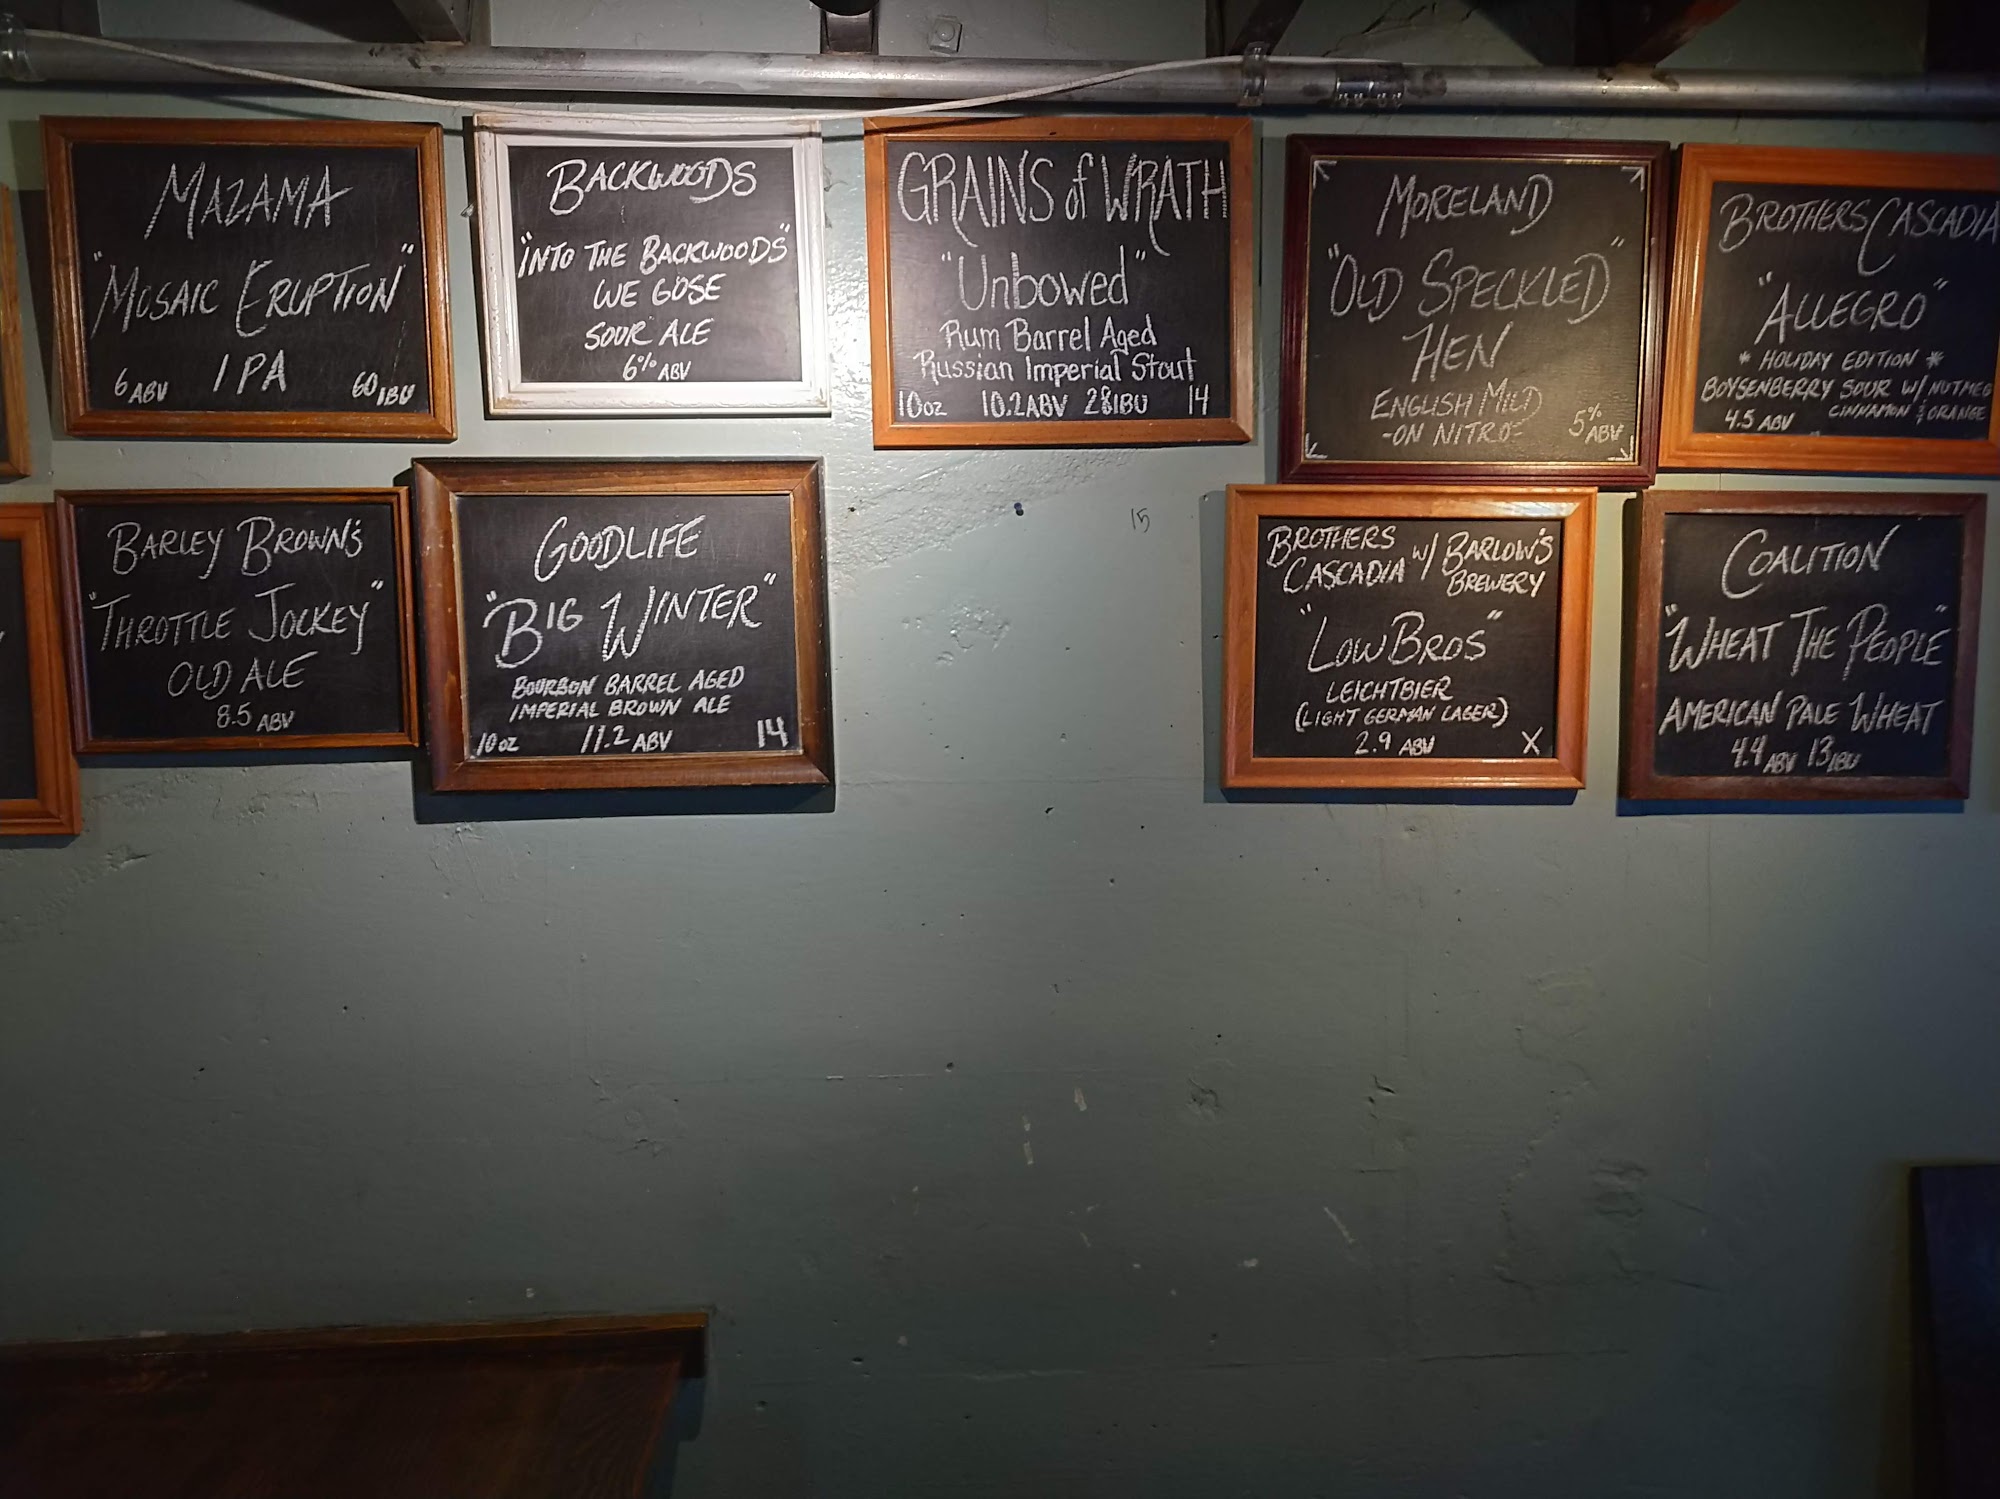 MAZAMA
"MOSAIC ERUPTION"
6 ABV IPA 60 IBU
BACKWOODS
"INTO THE BACKWOODS"
WE GOSE
SOUR ALE
6% ABV
GRAINS of WRATH
"Unbowed"
Rum Barrel Aged
Russian Imperial Stout
10oz 10.2ABV 28IBU 14
MORELAND
"OLD SPECKLED"
HEN
ENGLISH MILD
-ON NITRO- 5% ABV
BROTHERS CASCADIA
"ALLEGRO"
* HOLIDAY EDITION *
BOYSENBERRY SOUR W/ NUTMEG
4.5 ABV CINNAMON & ORANGE
BARLEY BROWN'S
"THROTTLE JOCKEY"
OLD ALE
8.5 ABV
GOODLIFE
"BIG WINTER"
BOURBON BARREL AGED
IMPERIAL BROWN ALE
10oz 11.2 ABV 14
15
BROTHERS CASCADIA W/ BARLOW'S BREWERY
"LOWBROS"
LEICHTBIER
(LIGHT GERMAN LAGER)
2.9 ABV X
COALITION
"WHEAT THE PEOPLE"
AMERICAN PALE WHEAT
4.4 ABV 13 IBU